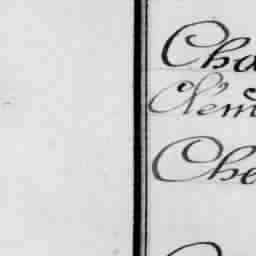 Cha
Clém
Che